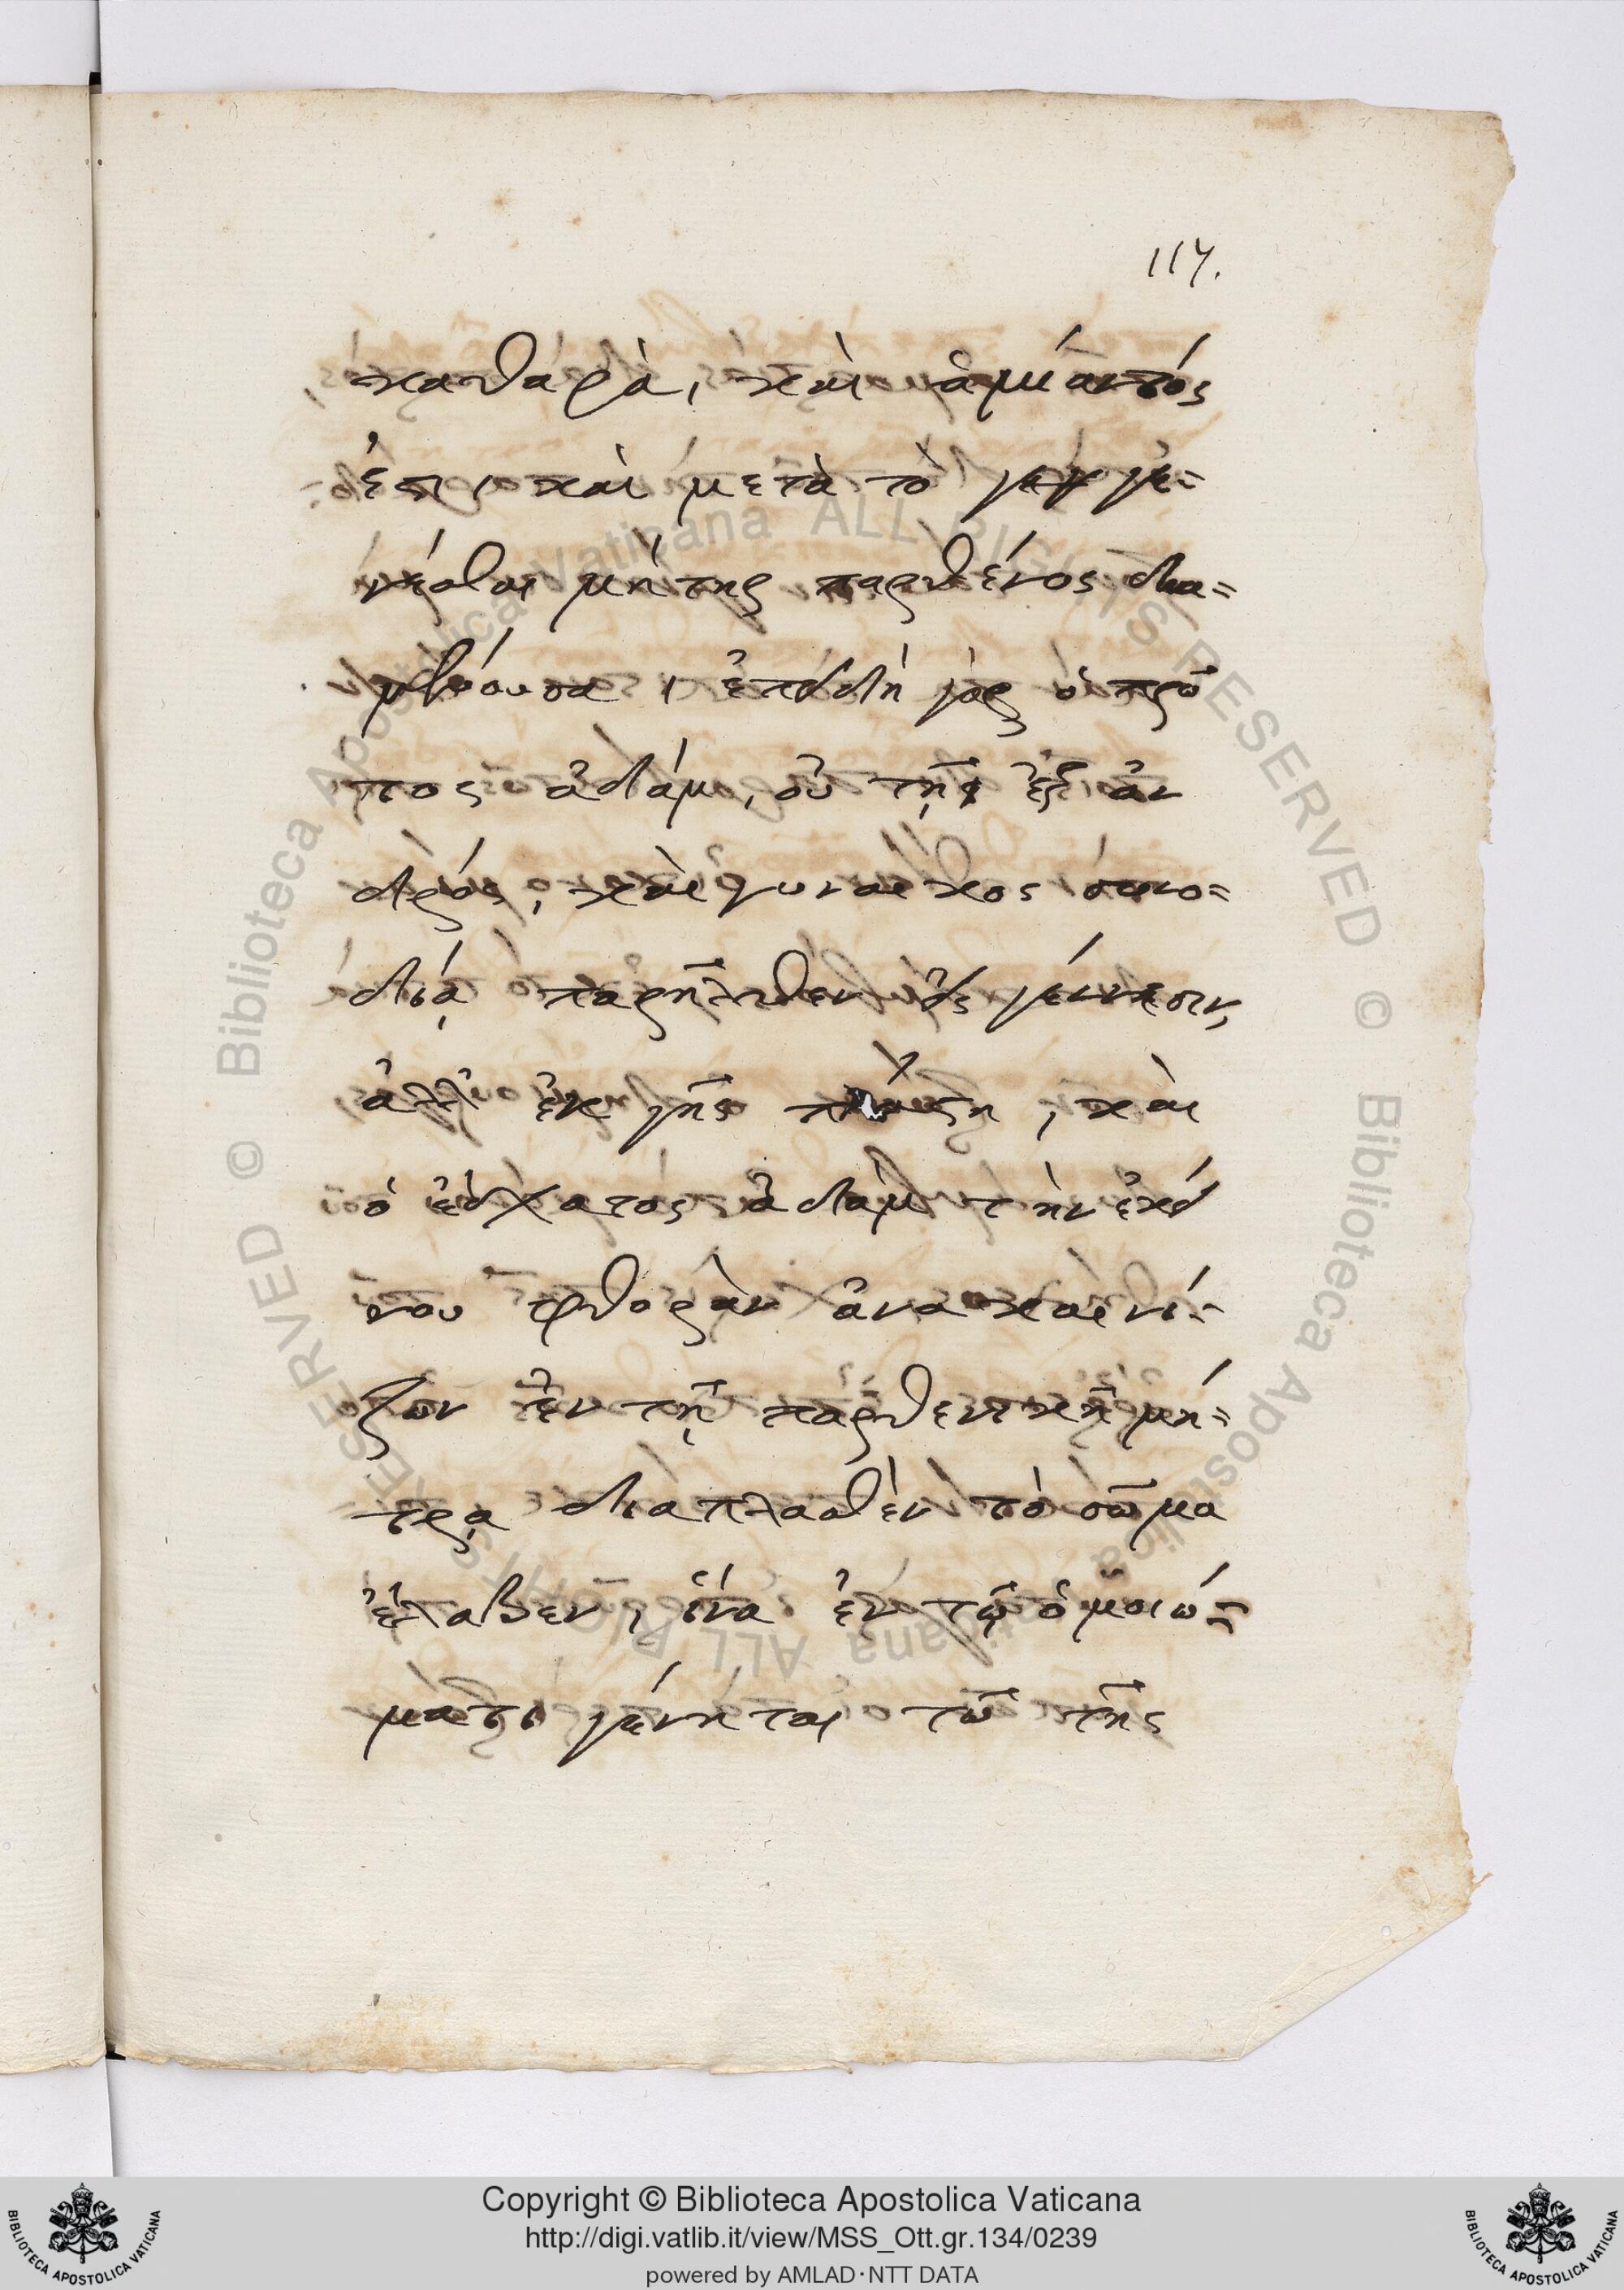 117.
καθαρὰ, καὶ ἀμίαντός
ἐστι, καὶ μετὰ τὸ γεγε-
νέσθαι μήτηρ παρθένος δια-
μένουσα, ἐπειδὴ γὰρ ὁ πρῶ
τος ἀδάμ, οὐ τῇ ἐξ ἀν
δρός, καὶ γυναικος συνο-
δίᾳ παρῆλθεν εἰς γέννησιν,
ἀλλ' ἐκ γῆς πλάστη, καὶ
ὁ ἔσχατος ἀδὰμ τὴν ἐκεί
νου φθορὰν ἀνακαινί-
ζων ἐν τῇ παρθενικῇ μή-
τρᾳ διαπλασθὲν τὸ σῶμα
ἔλαβεν, ἵνα ἐν τῷ ὁμοιώ-
ματι γένηται τῶ τῆς
Copyright © Biblioteca Apostolica Vaticana
http://digi.vatlib.it/view/MSS_Ott.gr.134/0239
powered by AMLAD·NTT DATA
BIBLIOTECA APOSTOLICA VATICANA
BIBLIOTECA APOSTOLICA VATICANA
© Biblioteca Apostolica Vaticana ALL RIGHTS RESERVED
© Biblioteca Apostolica Vaticana ALL RIGHTS RESERVED